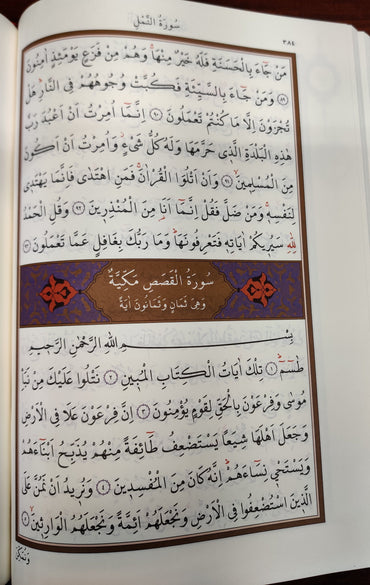 سُورَةُ النَّمْلِ
٣٨٤
مَنْ جَٓاءَ بِالْحَسَنَةِ فَلَهُ خَيْرٌ مِنْهَاۚ وَهُمْ مِنْ فَزَعٍ يَوْمَئِذٍ اٰمِنُونَ
﴿٨٩﴾ وَمَنْ جَٓاءَ بِالسَّيِّئَةِ فَكُبَّتْ وُجُوهُهُمْ فِي النَّارِۜ هَلْ
تُجْزَوْنَ اِلَّا مَا كُنْتُمْ تَعْمَلُونَ ﴿٩٠﴾ اِنَّمَٓا اُمِرْتُ اَنْ اَعْبُدَ رَبَّ
هٰذِهِ الْبَلْدَةِ الَّذ۪ي حَرَّمَهَا وَلَهُ كُلُّ شَيْءٍۘ وَاُمِرْتُ اَنْ اَكُونَ
مِنَ الْمُسْلِم۪ينَۙ ﴿٩١﴾ وَاَنْ اَتْلُوَ۬ا الْقُرْاٰنَۚ فَمَنِ اهْتَدٰى فَاِنَّمَا يَهْتَد۪ي
لِنَفْسِه۪ۚ وَمَنْ ضَلَّ فَقُلْ اِنَّمَٓا اَنَا۬ مِنَ الْمُنْذِر۪ينَ ﴿٩٢﴾ وَقُلِ الْحَمْدُ
لِلّٰهِ سَيُر۪يكُمْ اٰيَاتِه۪ فَتَعْرِفُونَهَاۜ وَمَا رَبُّكَ بِغَافِلٍ عَمَّا تَعْمَلُونَ ﴿٩٣﴾
سُورَةُ الْقَصَصِ مَكِّيَّةٌ
وَهِيَ ثَمَانٍ وَثَمَانُونَ اٰيَةً
بِسْمِ اللّٰهِ الرَّحْمٰنِ الرَّح۪يمِ
طٰسٓمٓ ﴿١﴾ تِلْكَ اٰيَاتُ الْكِتَابِ الْمُب۪ينِ ﴿٢﴾ نَتْلُوا عَلَيْكَ مِنْ نَبَأِ
مُوسٰى وَفِرْعَوْنَ بِالْحَقِّ لِقَوْمٍ يُؤْمِنُونَ ﴿٣﴾ اِنَّ فِرْعَوْنَ عَلَا فِي الْاَرْضِ
وَجَعَلَ اَهْلَهَا شِيَعًا يَسْتَضْعِفُ طَٓائِفَةً مِنْهُمْ يُذَبِّحُ اَبْنَٓاءَهُمْ
وَيَسْتَحْي۪ نِسَٓاءَهُمْۜ اِنَّهُ كَانَ مِنَ الْمُفْسِد۪ينَ ﴿٤﴾ وَنُر۪يدُ اَنْ نَمُنَّ عَلَى
الَّذ۪ينَ اسْتُضْعِفُوا فِي الْاَرْضِ وَنَجْعَلَهُمْ اَئِمَّةً وَنَجْعَلَهُمُ الْوَارِث۪ينَۙ ﴿٥﴾
وَنُمَكِّنَ